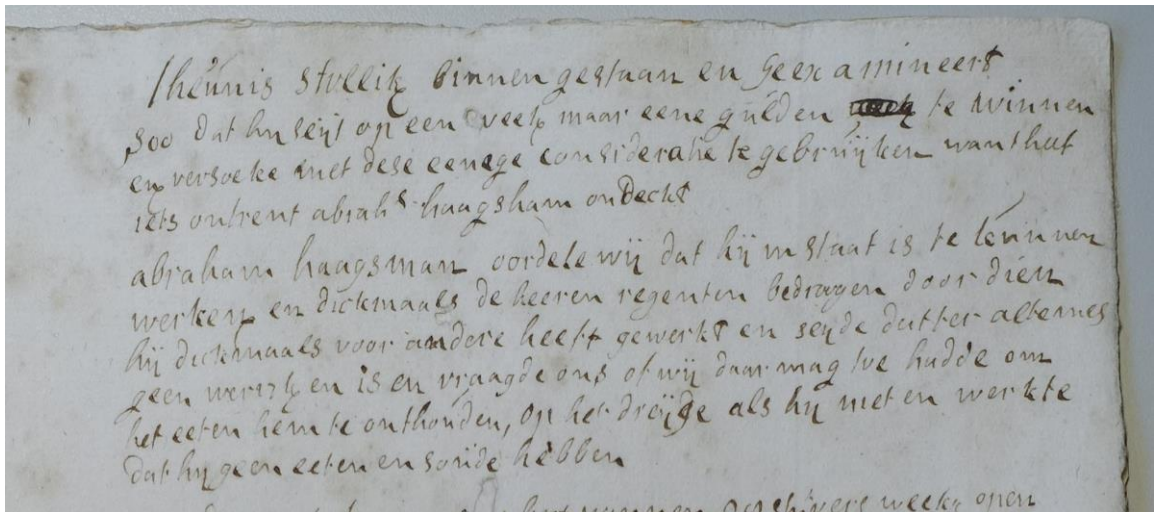 theunis streik binnen gestaan en geexamineert
soo dat hij seijt op een week maar eene gulden te winnen
en versoeke met dese eenege consideratie te gebruijken want hat
iets ontrent abrah haagsham ondeckt
abraham haagsman oordele wij dat hij in staat is te kunnen
werken en dickmaals de heeren regenten bedragen door dien
hij dickmaals voor andere heeft gewerkt en seijde datter altemes
geen werck en is en vraagde ons of wij daar magt toe hadde om
het eeten hem te onthouden, op het dreijde als hij niet en werkte
dat hij geen eeten en soude hebben
weeke open